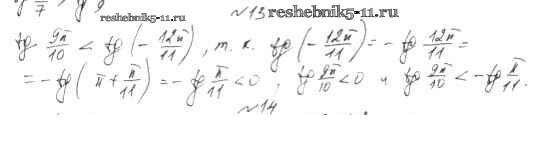 №13 reshebnik5-11.ru
reshebnik5-11.ru
tg 9π/10 < tg (- 12π/11), т.к. tg (- 12π/11) = - tg 12π/11 =
= - tg (π + π/11) = - tg π/11 < 0, tg 9π/10 < 0 и tg 9π/10 < - tg π/11.
№14